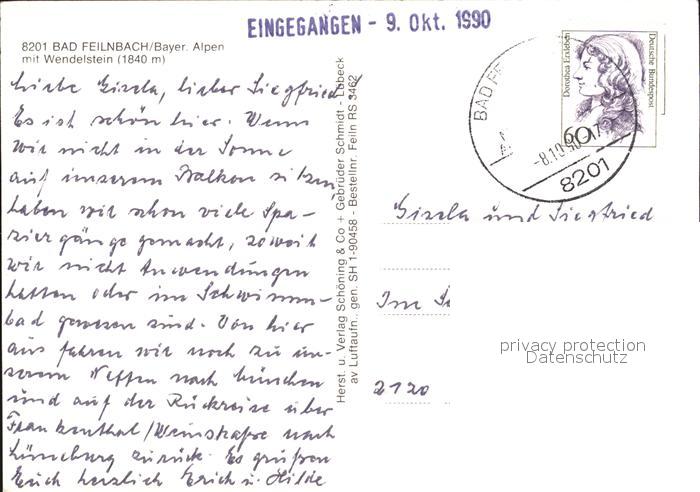 EINGEGANGEN - 9. Okt. 1990
8201 BAD FEILNBACH/Bayer. Alpen
mit Wendelstein (1840 m)
Liebe Gisela, lieber Siegfried
Es ist schön hier. Wenn
wir nicht in der Sonne
auf unserem Balkon sitzen
haben wir schon viele Spa-
ziergänge gemacht, soweit
wir nicht Anwendungen
hatten oder im Schwimm-
bad gewesen sind. Von hier
aus fahren wir noch zu un-
serem Neffen nach München
und auf der Rückreise über
Frankenthal/Weinstraße nach
Lüneburg zurück. Es grüßen
Euch herzlich Erich u. Hilde
Herst. u. Verlag Schöning & Co + Gebrüder Schmidt - Lübeck
av Luftaufn., gen. SH 1-90458 - Bestellnr. Feiln RS 3462
Dorothea Erxleben
Deutsche Bundespost
60
BAD FE
-8.10.90-17
8201
Gisela und Siegfried
Im
2120
privacy protection
Datenschutz